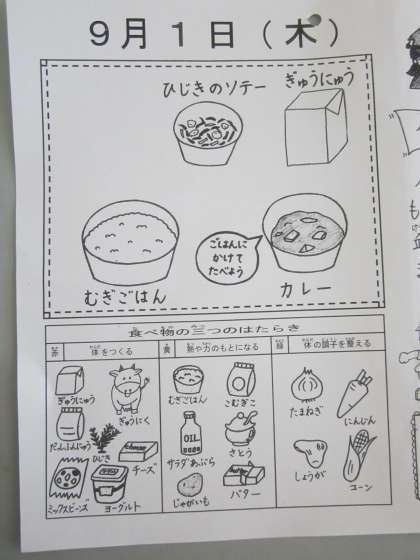 9月1日(木)
ひじきのソテー
ぎゅうにゅう
ごはんに
かけて
たべよう
むぎごはん
カレー
食べ物の三つのはたらき
赤 体をつくる 黄 熱や力のもとになる 緑 体の調子を整える
ぎゅうにゅう
ぎゅうにく
だっしふんにゅう
ひじき
チーズ
ミックスビーンズ
ヨーグルト
むぎごはん
こむぎこ
OIL
サラダあぶら
さとう
じゃがいも
バター
たまねぎ
にんじん
しょうが
コーン